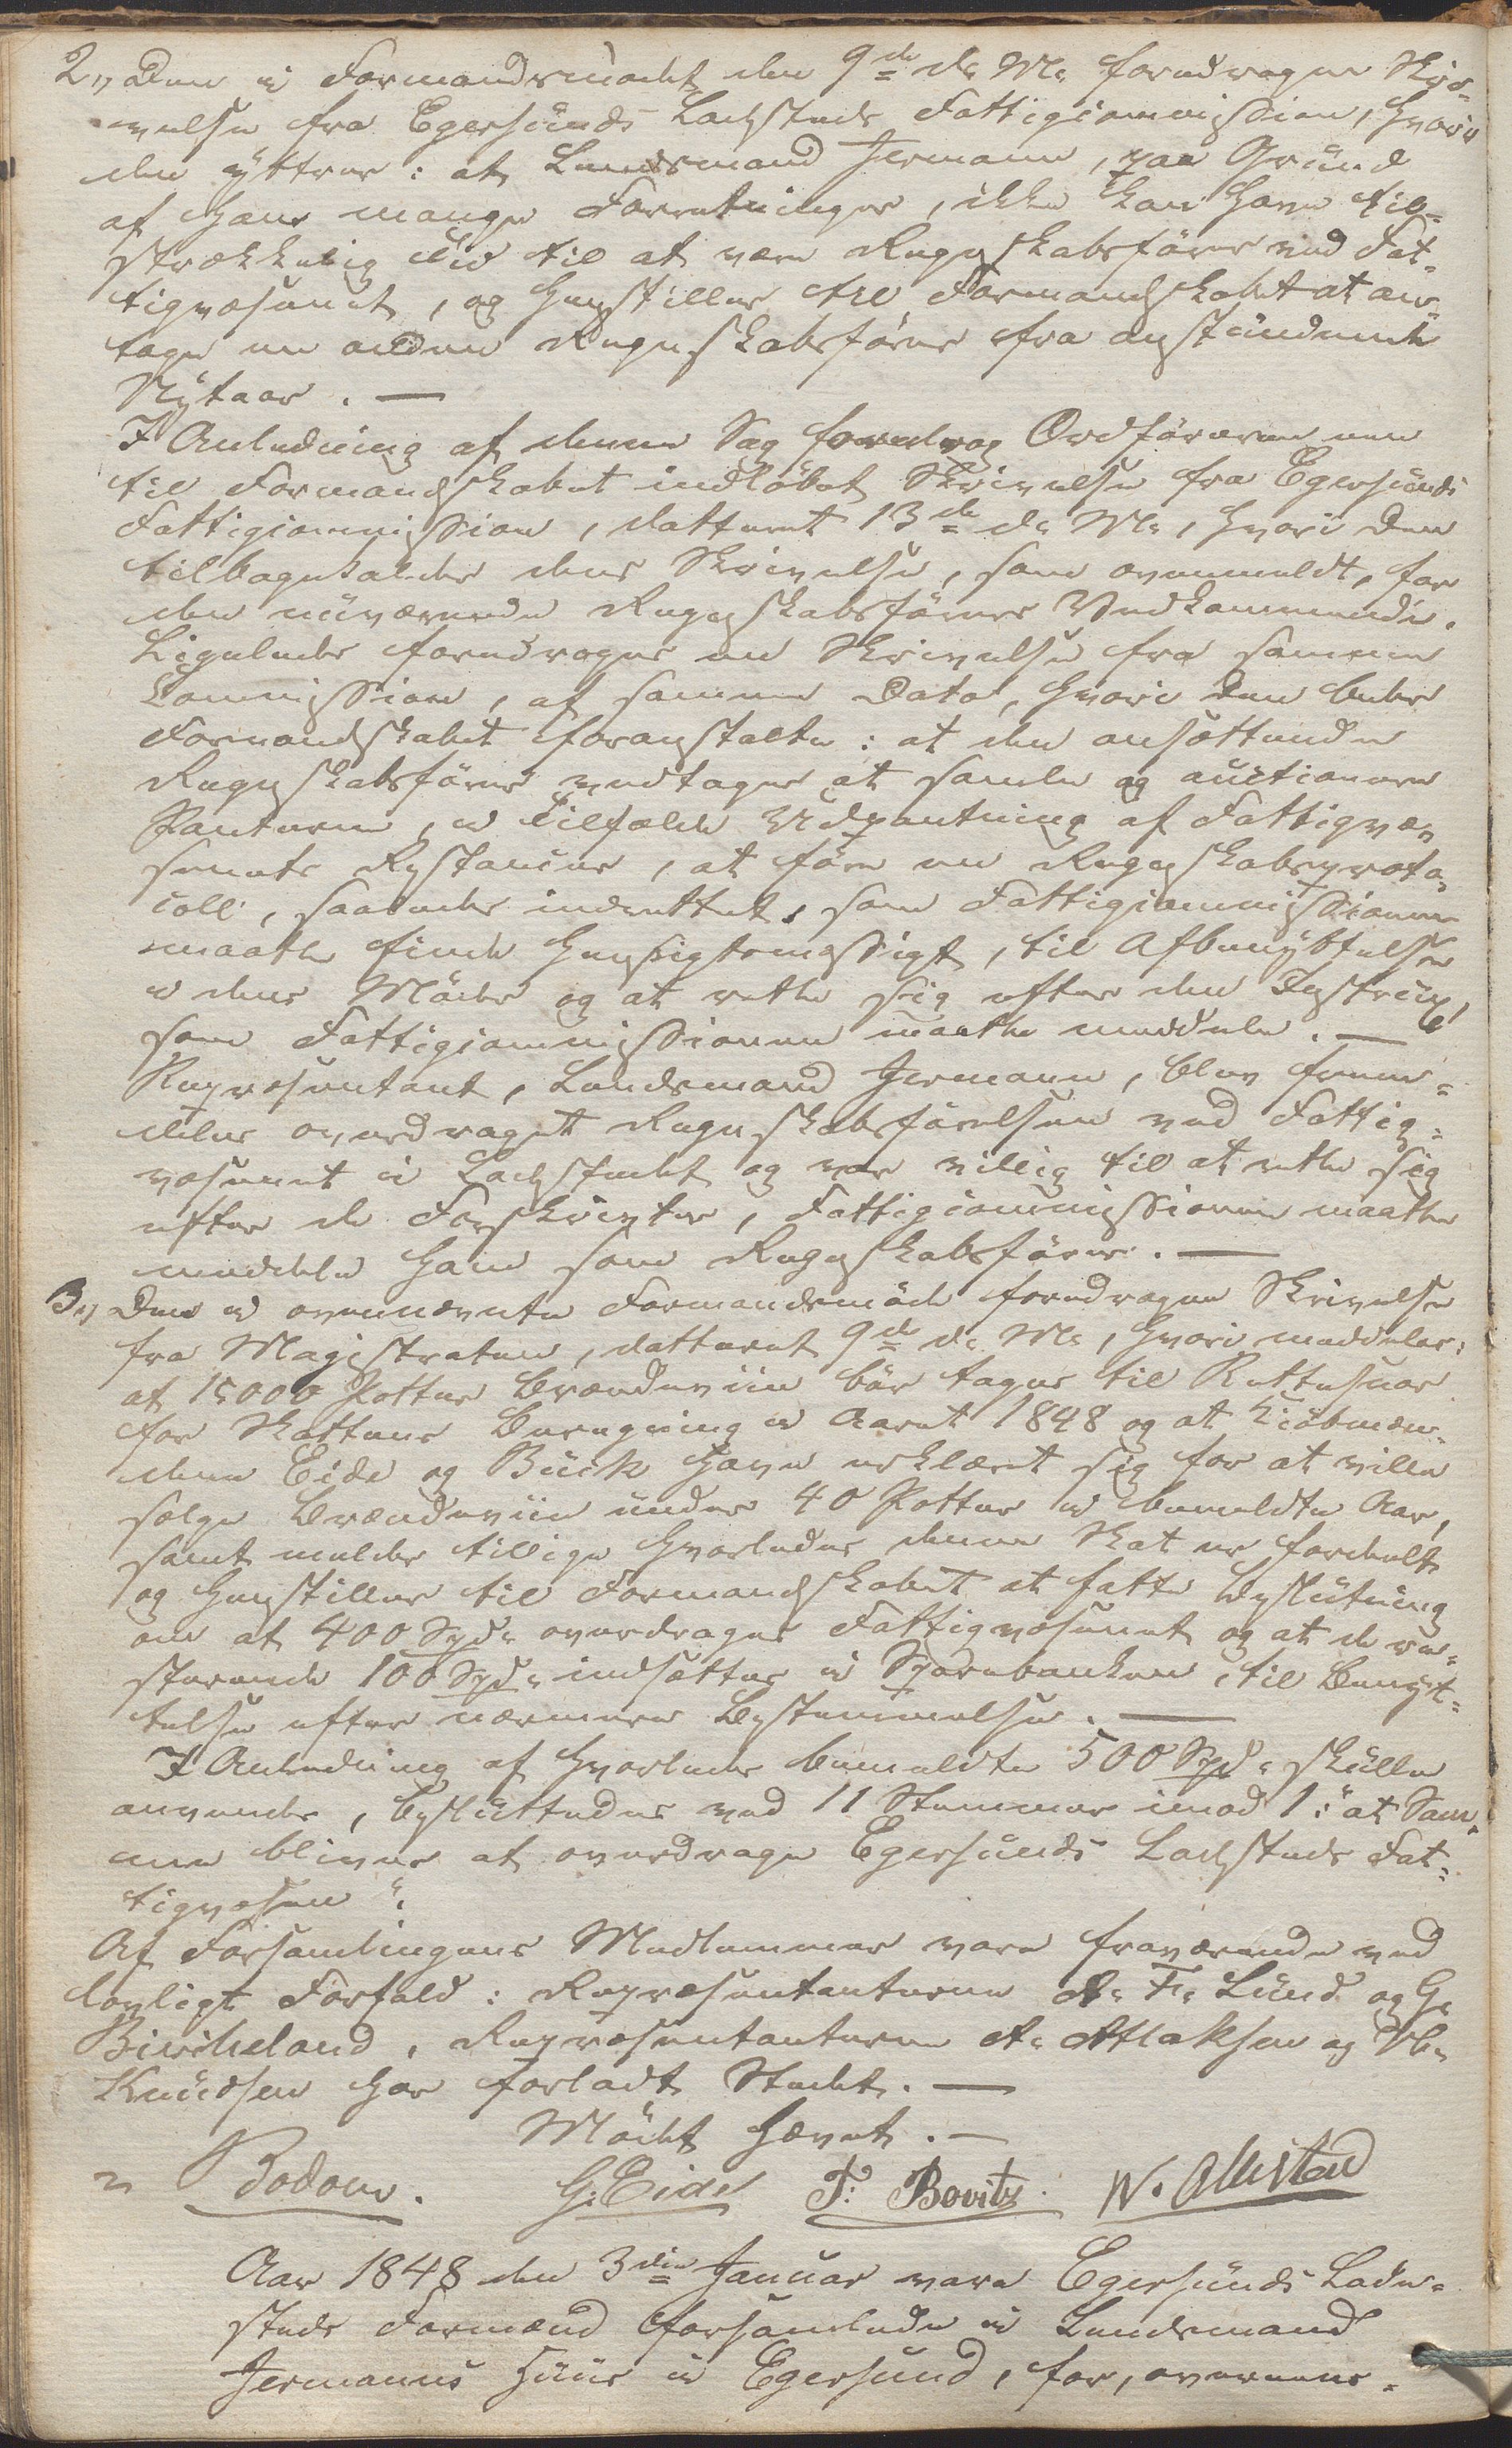 2, Den i Formandsmødet den 9de d. M. foredragne Skri-
velse fra Egersunds Ladsteds Fattigcommission, hvori
den yttrer: at Lendsmand Jermann, paa Grund
af Hans mange Forretninger, ikke kan have til-
strækkelig Tid til at være Regnskabsfører ved Fat-
tigvæsenet, og henstiller til Formandskabet at an-
tage en anden Regnskabsfører fra anstundende
Nytaar. —
I Anledning af denne Sag foredrog Ordføreren en
til Formandskabet indløbet Skrivelse fra Egersunds
Fattigcommission, datteret 13de d. M., hvori den
tilbagekalder dens Skrivelse, som ovenmeldt, for
den nuværende Regnskabsfører Vedkommende.
Ligeledes foredroges en Skrivelse fra samme
Commission, af samme Dato, hvori den beder
Formandskabet foranstalte: at den ansættende
Regnskabsfører vedtager at samle og auctionere
Panterne, i Tilfælde Udpantning af Fattigvæ-
senets Restancer, at føre en Regnskabsproto-
coll, saaledes indrettet, som Fattigcommissionen
maatte finde hensigtsmæssigt, til Afbenyttelse
i dens Møder og at rette sig efter den Instrux,
som Fattigcommissionen maatte meddele. —
Repræsentant, Lendsmand Jermann, blev frem-
deles overdraget Regnskabsførelsen ved Fattig-
væsenet i Ladstedet og var villig til at rette sig
efter de Forskrivter, Fattigcommissionen maatte
meddele ham som Regnskabsfører. —
3, Den i ovennævnte Formandsmøde foredragne Skrivelse
fra Magistraten, datteret 9de d. M., hvori meddeles:
at 15000 Potter Brændeviin bør tages til Rettesnor
for Skattens Beregning i Aaret 1848 og at Kiøbmæn-
dene Eide og Buck have erklæret sig for at ville
sælge Brændeviin under 40 Potter i bemeldte Aar,
samt melder tillige hvorledes denne Skat er fordeelt
og henstiller til Formandskabet at fatte Beslutning
om at 400 Spd. overdrages Fattigvæsenet og at de re-
sterende 100 Spd. indsættes i Sparebanken, til Benyt-
telse efter nærmere Bestemmelse. —
I Anledning af hvorledes bemeldte 500 Spd. skulle
anvendes, besluttedes med 11 Stemmer imod 1: "at Sam-
me bliver at overdrage Egersunds Ladsteds Fat-
tigvæsen".
Af Forsamlingens Medlemmer vare fraværende ved
lovligt Forfald: Repræsentanterne A. F. Lund og G.
Birkeland, Repræsentanterne A. Atlaksen og M.
Knudsen har forladt Stedet. —
Mødet hævet. —
Bodom. G. Eide F. Bovitz. W. Ollestad
Aar 1848 den 3die Januar vare Egersunds Lade-
steds Formænd forsamlede i Lendsmand
Jermanns Huus i Egersund, for, overeens-